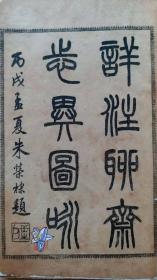 詳註聊齋
志異圖咏
丙戌孟夏朱榮棣題